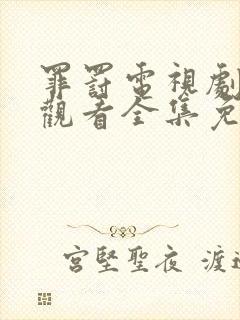 罪罰電視劇
觀看全集免
宮堅聖夜 渡邊